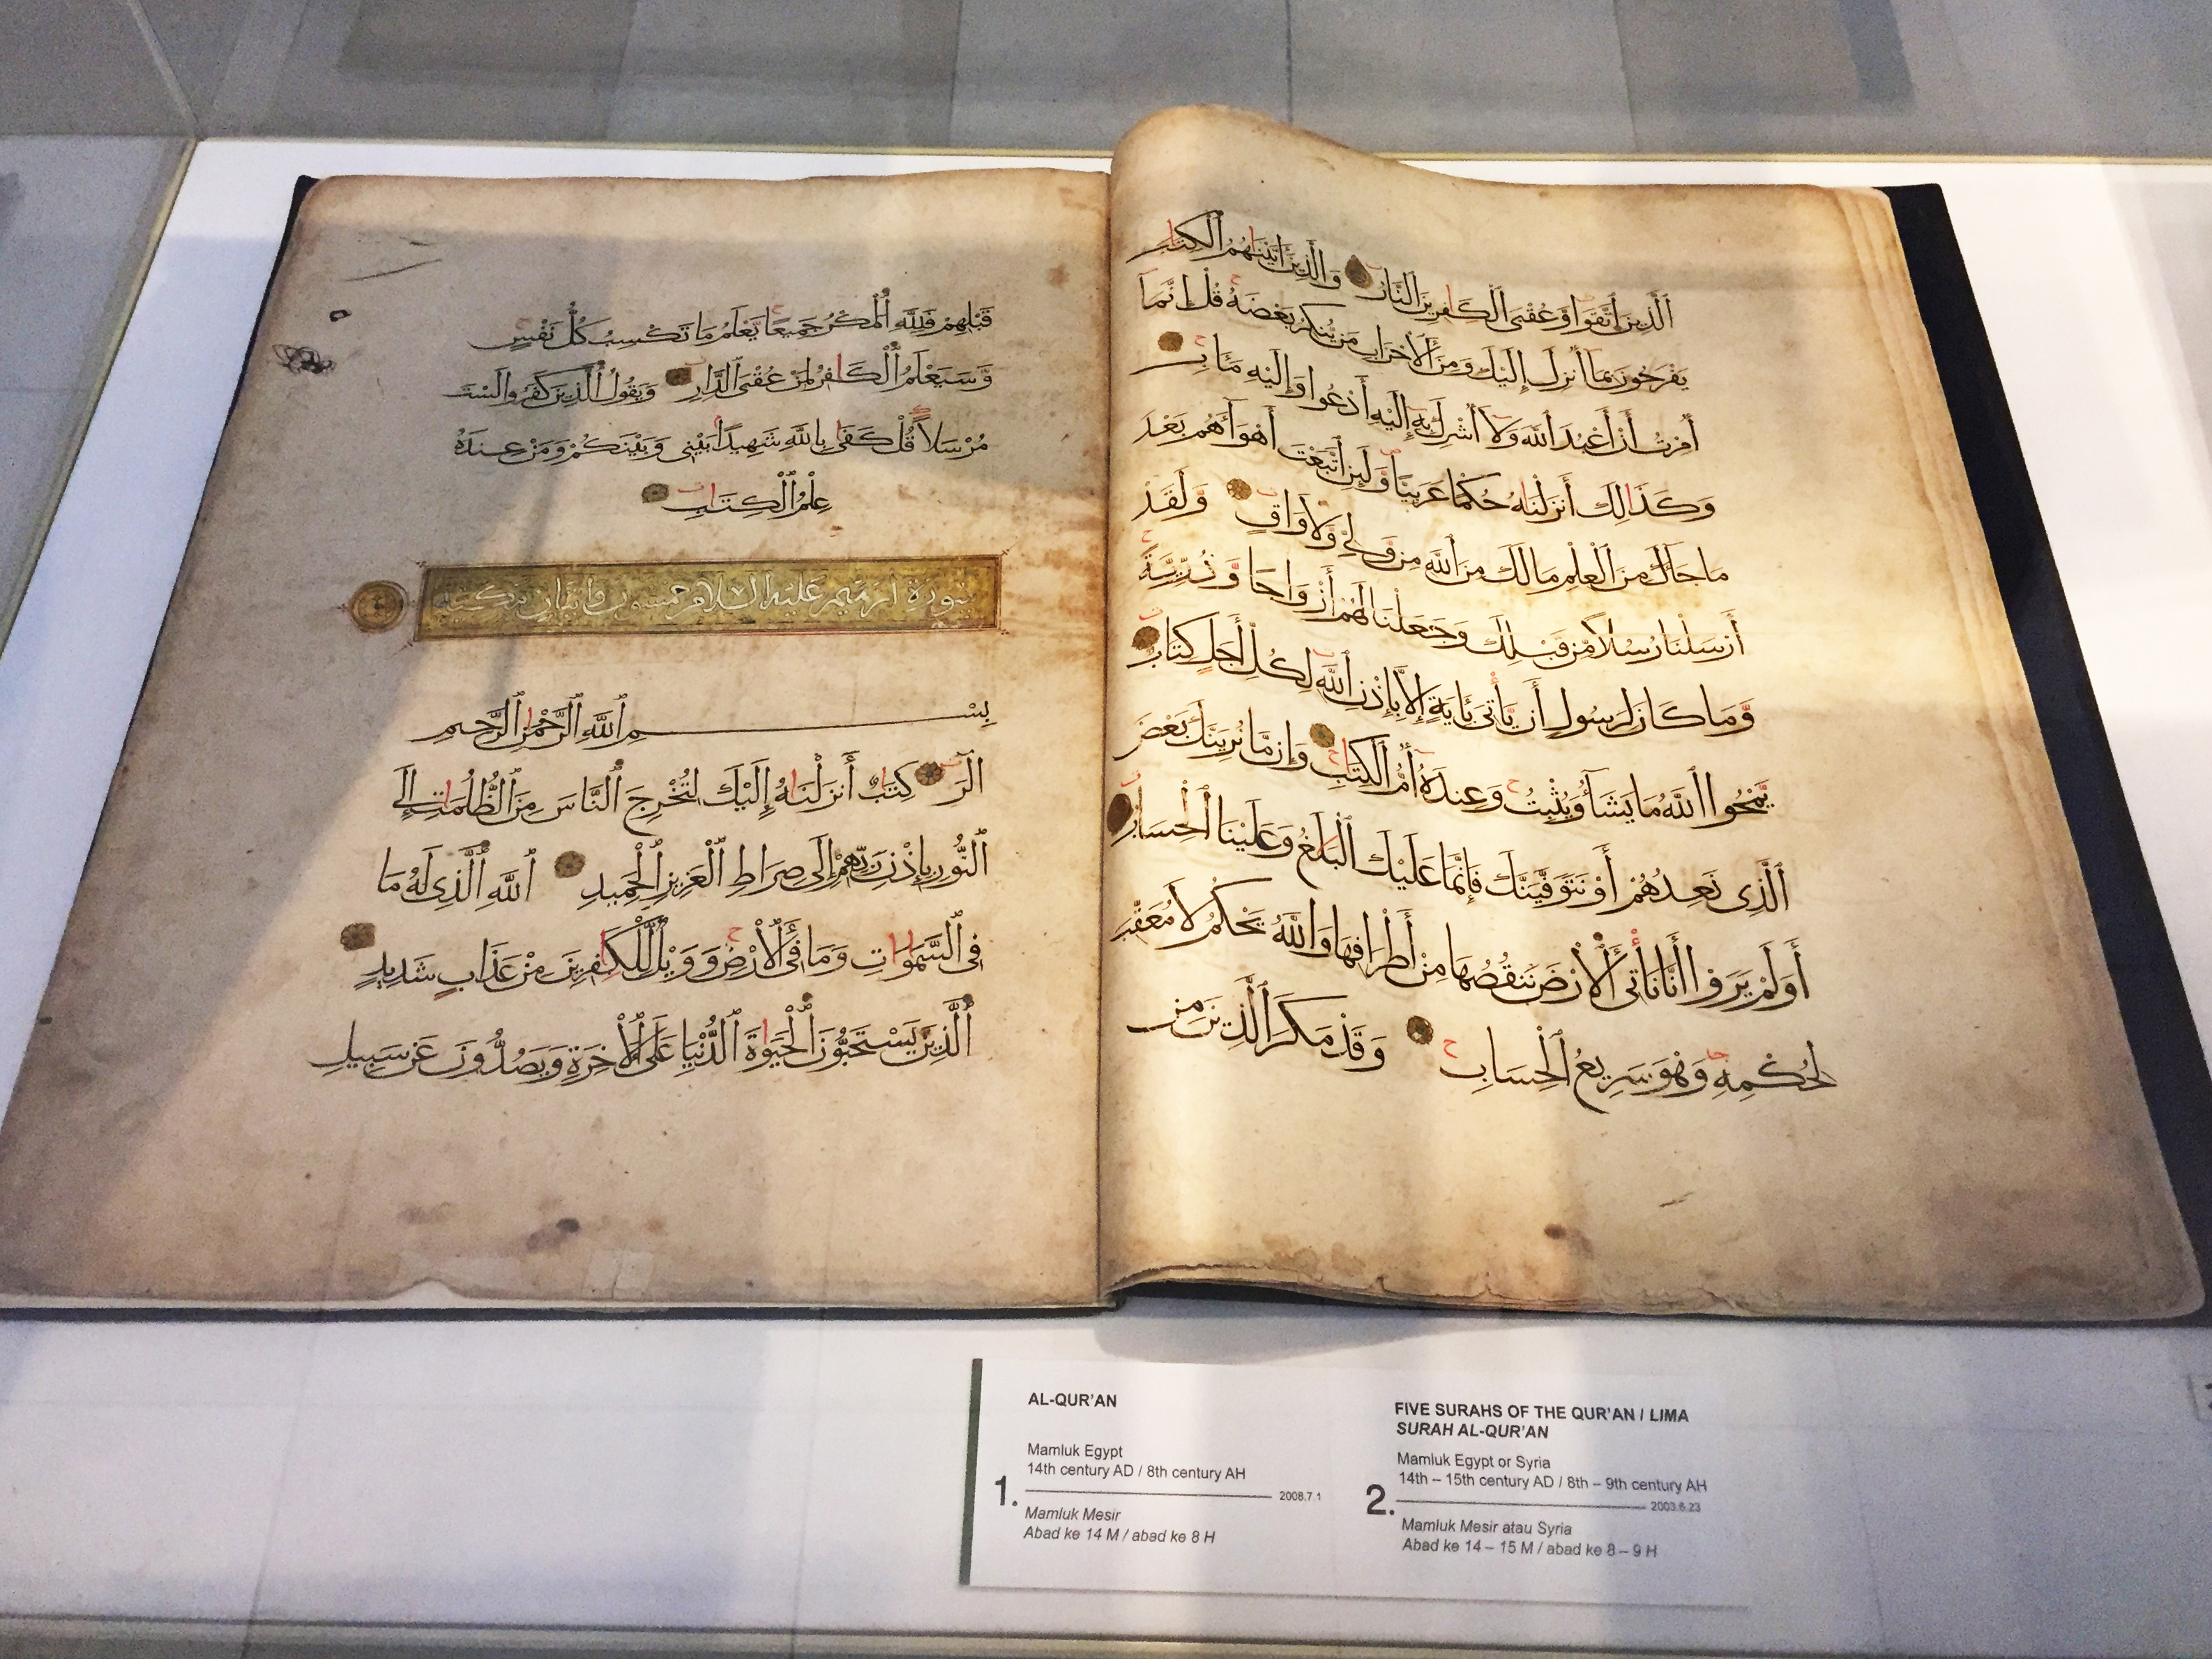 ٱلَّذِينَ ٱتَّقَوا وَّعُقْبَى ٱلْكَٰفِرِينَ ٱلنَّارُ وَالَّذِينَ اٰتَيْنَٰهُمُ ٱلْكِتَٰبَ
يَفْرَحُونَ بِمَا أُنزِلَ إِلَيْكَ وَمِنَ ٱلْأَحْزَابِ مَن يُنكِرُ بَعْضَهُ قُلْ إِنَّمَا
أُمِرْتُ أَنْ أَعْبُدَ ٱللَّهَ وَلَا أُشْرِكَ بِهِ إِلَيْهِ أَدْعُوا وَإِلَيْهِ مَـَٔابِ
وَكَذَالِكَ أَنزَلْنَٰهُ حُكْمًا عَرَبِيًّا وَّلَئِنِ ٱتَّبَعْتَ أَهْوَآءَهُم بَعْدَ
مَا جَآءَكَ مِنَ ٱلْعِلْمِ مَا لَكَ مِنَ ٱللَّهِ مِن وَّلِيٍّ وَّلَا وَاقٍ وَلَقَدْ
أَرْسَلْنَا رُسُلًا مِّن قَبْلِكَ وَجَعَلْنَا لَهُمْ أَزْوَاجًا وَّذُرِّيَّةً
وَّمَا كَانَ لِرَسُولٍ أَن يَّأْتِىَ بِـَٔايَةٍ إِلَّا بِإِذْنِ ٱللَّهِ لِكُلِّ أَجَلٍ كِتَابٌ
يَّمْحُوا ٱللَّهُ مَا يَشَآءُ وَيُثْبِتُ وَعِندَهُ أُمُّ ٱلْكِتَٰبِ وَإِن مَّا نُرِيَنَّكَ بَعْضَ
ٱلَّذِى نَعِدُهُمْ أَوْ نَتَوَفَّيَنَّكَ فَإِنَّمَا عَلَيْكَ ٱلْبَلَٰغُ وَعَلَيْنَا ٱلْحِسَابُ
أَوَلَمْ يَرَوْا أَنَّا نَأْتِى ٱلْأَرْضَ نَنقُصُهَا مِنْ أَطْرَافِهَا وَاللَّهُ يَحْكُمُ لَا مُعَقِّبَ
لِحُكْمِهِ وَهُوَ سَرِيعُ ٱلْحِسَابِ وَقَدْ مَكَرَ ٱلَّذِينَ مِن
قَبْلِهِمْ فَلِلَّهِ ٱلْمَكْرُ جَمِيعًا يَعْلَمُ مَا تَكْسِبُ كُلُّ نَفْسٍ
وَّسَيَعْلَمُ ٱلْكَٰفِرُ لِمَنْ عُقْبَى ٱلدَّارِ وَيَقُولُ ٱلَّذِينَ كَفَرُوا لَسْتَ
مُرْسَلًا قُلْ كَفَىٰ بِاللَّهِ شَهِيدًا بَيْنِى وَبَيْنَكُمْ وَمَنْ عِندَهُ
عِلْمُ ٱلْكِتَٰبِ
سورة ابرهيم عليه السلام خمسون وايتان مكية
بِسْمِ ٱللَّهِ ٱلرَّحْمَٰنِ ٱلرَّحِيمِ
الٓر كِتَٰبٌ أَنزَلْنَٰهُ إِلَيْكَ لِتُخْرِجَ ٱلنَّاسَ مِنَ ٱلظُّلُمَٰتِ إِلَى
ٱلنُّورِ بِإِذْنِ رَبِّهِمْ إِلَى صِرَاطِ ٱلْعَزِيزِ ٱلْحَمِيدِ ٱللَّهِ ٱلَّذِى لَهُ مَا
فِى ٱلسَّمَٰوَٰتِ وَمَا فِى ٱلْأَرْضِ وَوَيْلٌ لِّلْكَٰفِرِينَ مِنْ عَذَابٍ شَدِيدٍ
ٱلَّذِينَ يَسْتَحِبُّونَ ٱلْحَيَوٰةَ ٱلدُّنْيَا عَلَى ٱلْأَخِرَةِ وَيَصُدُّونَ عَن سَبِيلِ
AL-QUR'AN
Mamluk Egypt
14th century AD / 8th century AH
1.
2008.7.1
Mamluk Mesir
Abad ke 14 M / abad ke 8 H
FIVE SURAHS OF THE QUR'AN / LIMA
SURAH AL-QUR'AN
Mamluk Egypt or Syria
14th – 15th century AD / 8th – 9th century AH
2.
2003.6.23
Mamluk Mesir atau Syria
Abad ke 14 – 15 M / abad ke 8 – 9 H